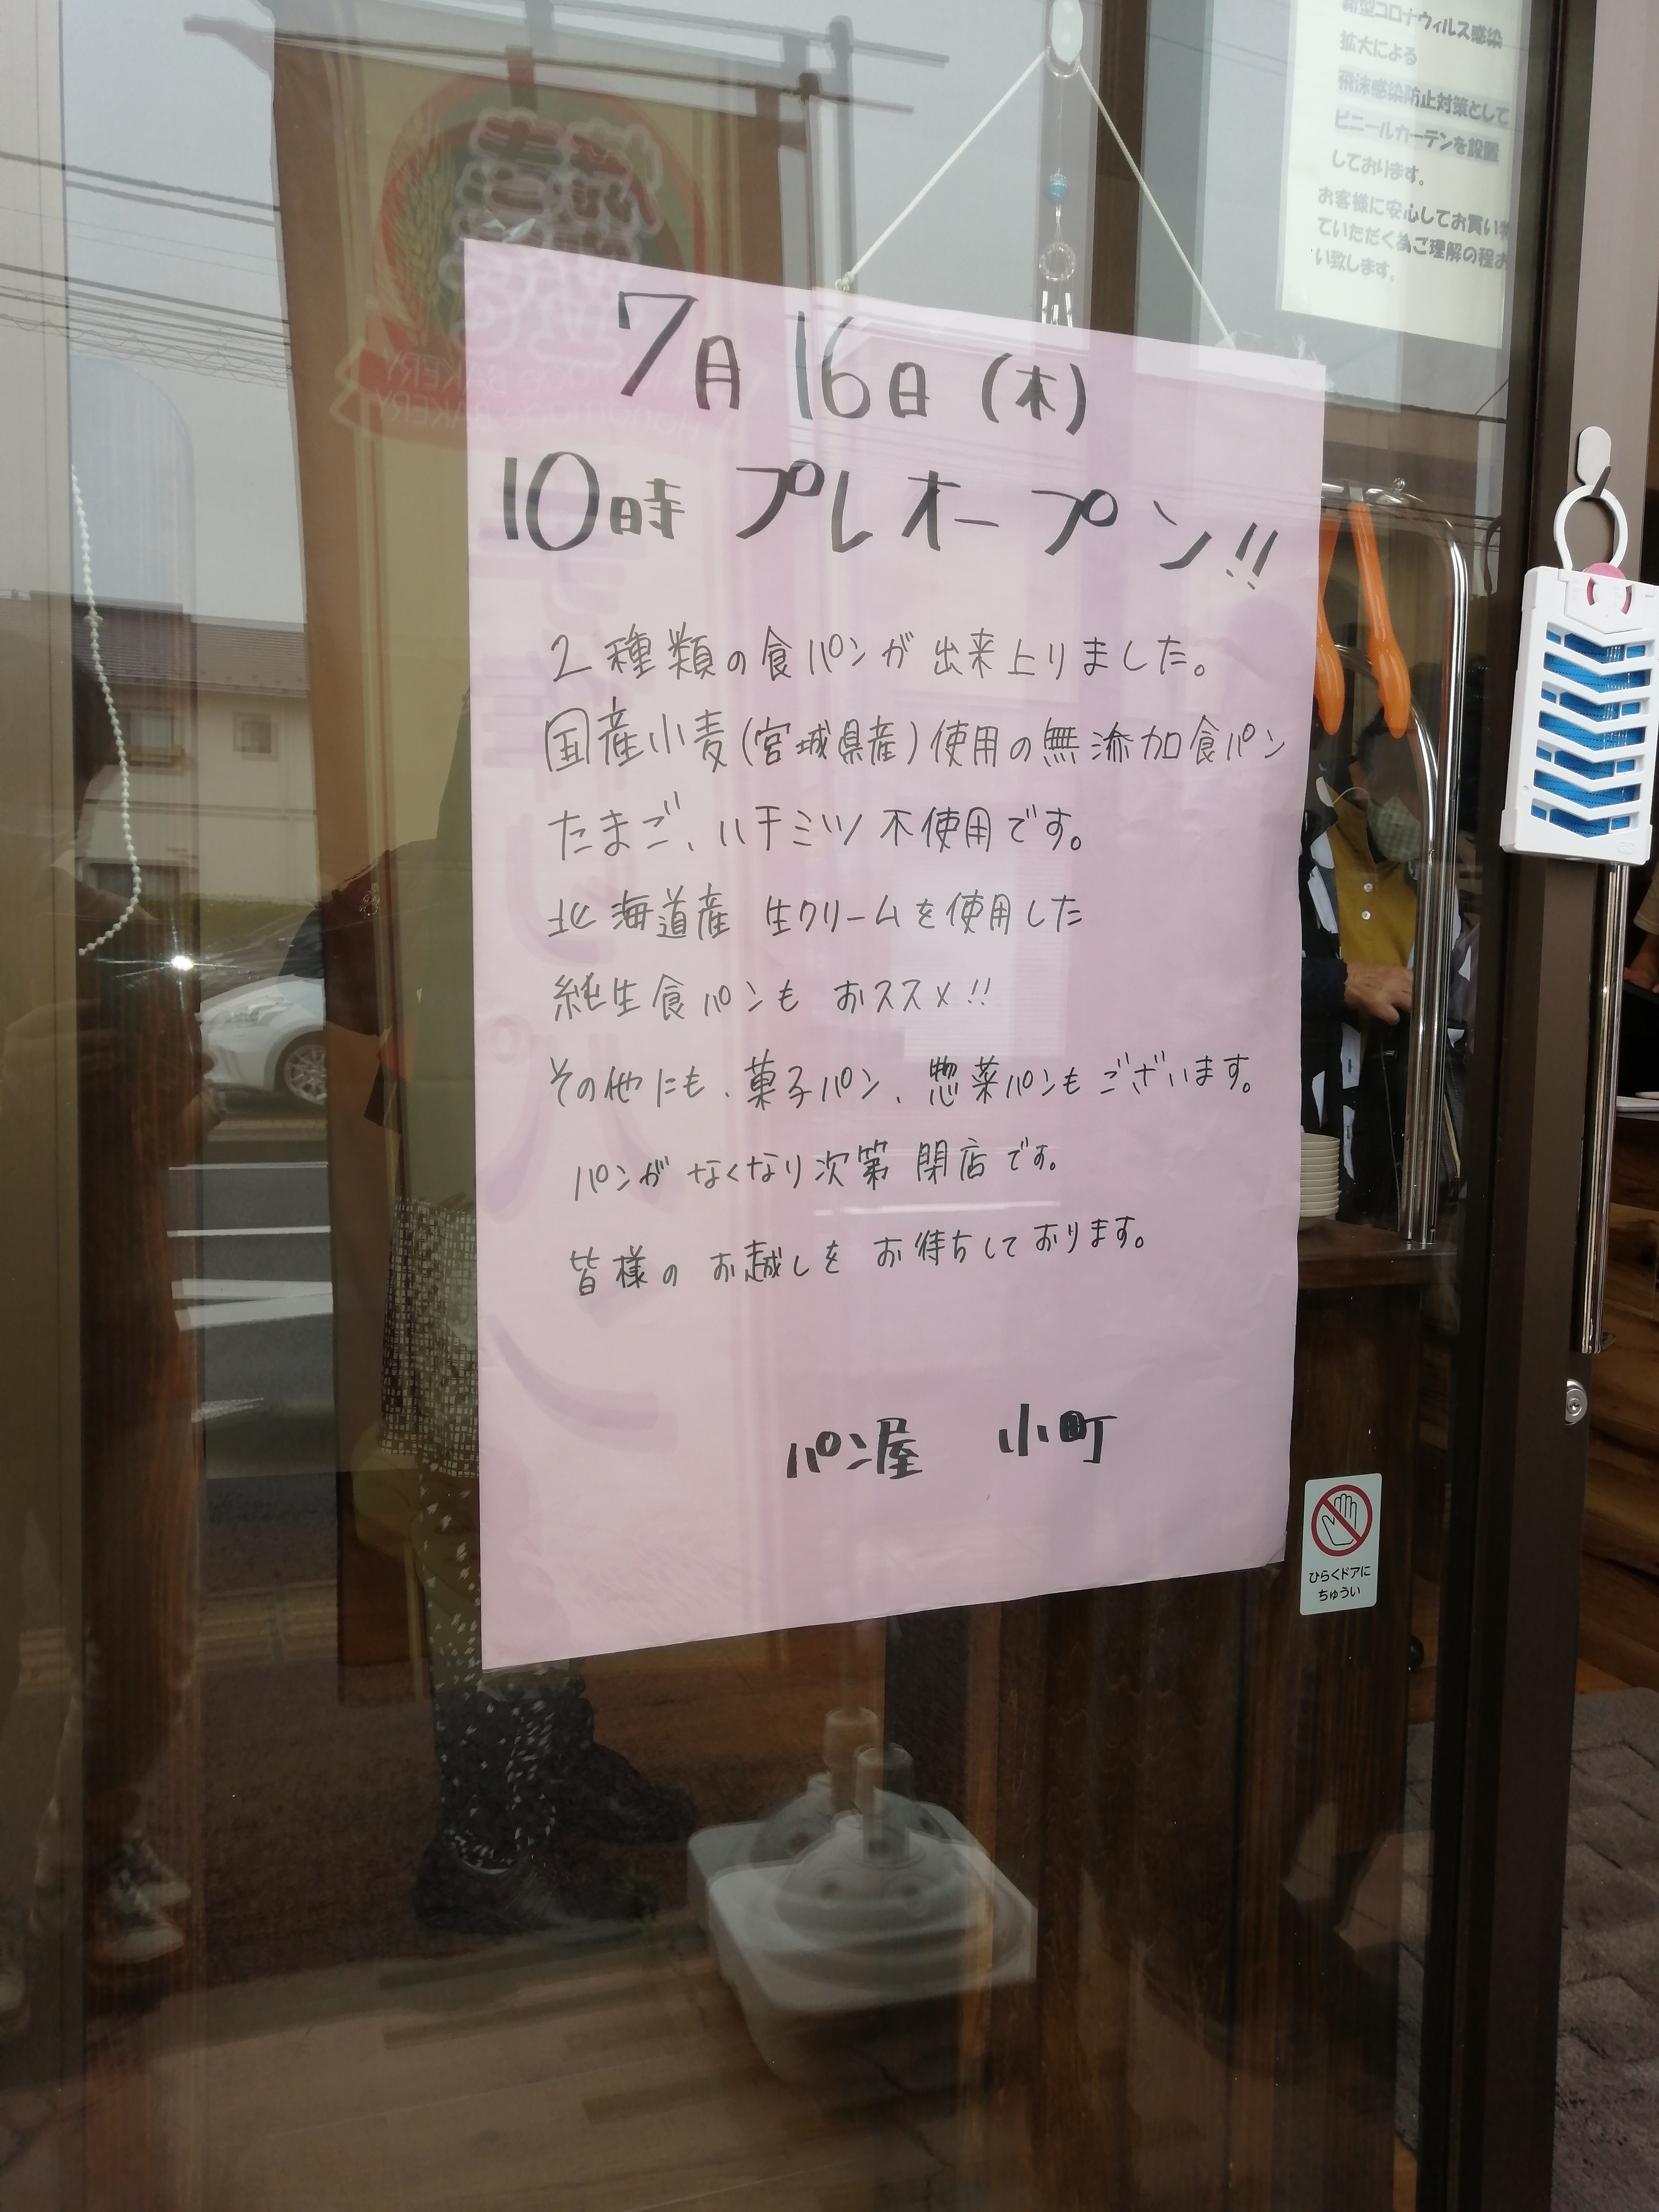 新型コロナウィルス感染
拡大による
飛沫感染防止対策として
ビニールカーテンを設置
しております。
お客様に安心してお買い物
ていただく為ご理解の程お
い致します。
7月16日(木)
10時 プレオープン!!
2種類の食パンが出来上りました。
国産小麦(宮城県産)使用の無添加食パン
たまご、ハチミツ不使用です。
北海道産 生クリームを使用した
純生食パンも おススメ!!
その他にも、菓子パン、惣菜パンもございます。
パンが なくなり次第 閉店です。
皆様の お越しを お待ちしております。
パン屋 小町
ひらくドアに
ちゅうい